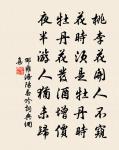 桃李花開人不窺
花時須是牡丹時
牡丹花發酒增價
夜半游人猶未歸
邵雍洛陽春吟
集